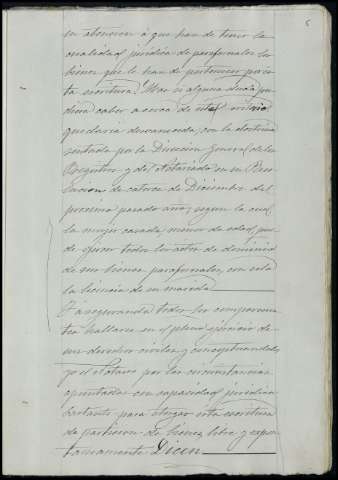 6
se abonacen á que han de tener la
cualidad jurídica de parafernales los
bienes que le han de pertenecer por es-
ta escritura. Mas si alguna duda pu-
diera caber a cerca de este criterio
quedaria desvanecida, con la doctrina
sentada por la Direccion General de los
Registros y del Notariado en su Reso-
lucion de catorce de Diciembre del
proximo pasado año, segun la cual
la mujer casada, menor de edad, pue-
de ejercer todos los actos de dominio
de sus bienes parafernales, con sola
la licencia de su marido.
Y asegurando todos los comparecien-
tes hallarse en el pleno ejercicio de
sus derechos civiles y conceptuandoles
yo el Notario por las circunstancias
apuntadas con capacidad juridica
bastante para otorgar esta escritura
de particion de bienes, libre y espon-
taneamente Dicen